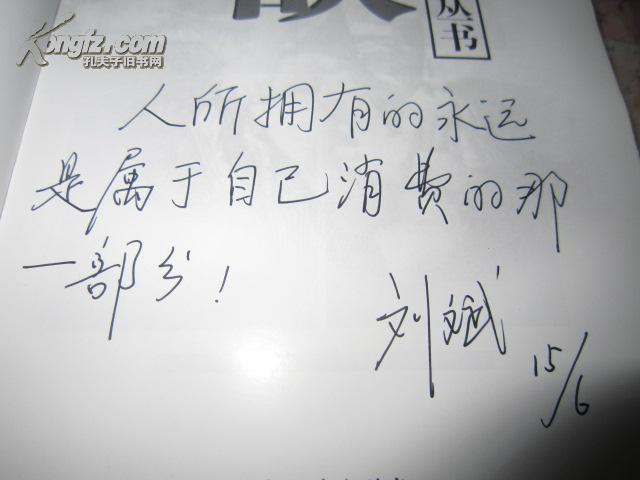 Kongfz.com
孔夫子旧书网
丛书
人所拥有的永远
是属于自己消费的那
一部分!
刘斌
15/6